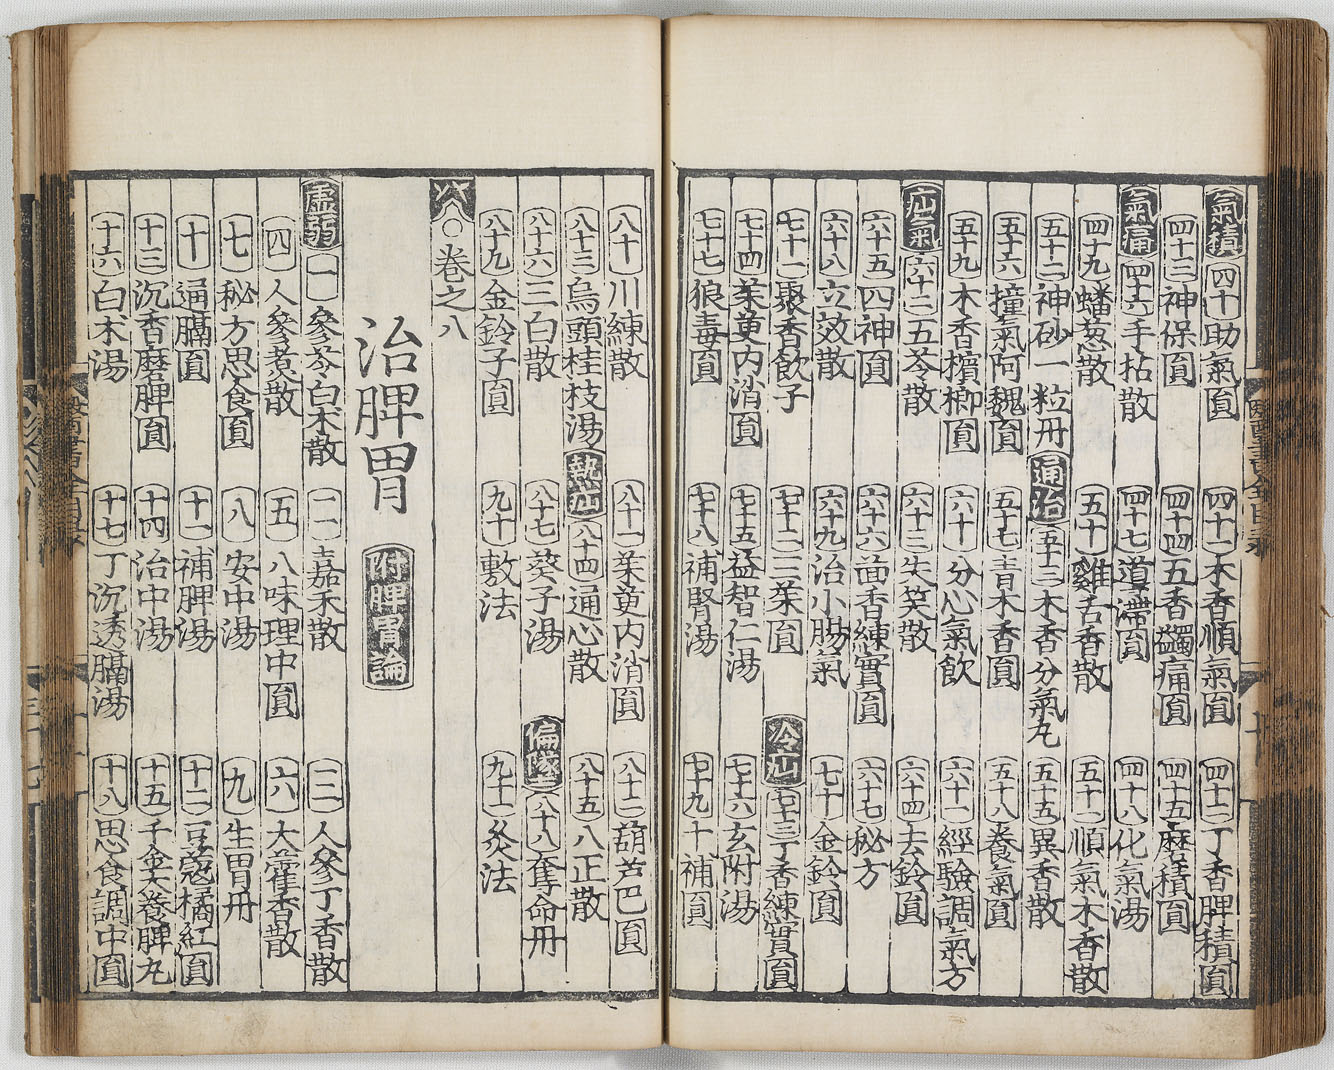 氣積 四十 助氣圓 四十一 木香順氣圓 四十二 丁香脾積圓
四十三 神保圓 四十四 五香蠲痛圓 四十五 磨積圓
氣痛 四十六 手拈散 四十七 導滯圓 四十八 化氣湯
四十九 蟠葱散 五十 雞舌香散 五十一 順氣木香散
五十二 神砂一粒丹 通治 五十三 木香分氣丸 五十五 異香散
五十六 撞氣阿魏圓 五十七 青木香圓 五十八 養氣圓
五十九 木香檳榔圓 六十 分心氣飲 六十一 經驗調氣方
疝氣 六十二 五苓散 六十三 失笑散 六十四 去鈴圓
六十五 四神圓 六十六 茴香練實圓 六十七 秘方
六十八 立效散 六十九 治小腸氣 七十 金鈴圓
七十一 聚香飲子 七十二 三茱圓 冷疝 七十三 丁香練實圓
七十四 茱萸内消圓 七十五 益智仁湯 七十六 玄附湯
七十七 狼毒圓 七十八 補腎湯 七十九 十補圓
八十 川練散 八十一 茱萸内消圓 八十二 葫芦巴圓
八十三 烏頭桂枝湯 熱疝 八十四 通心散 八十五 八正散
八十六 三白散 八十七 葵子湯 偏墜 八十八 奪命丹
八十九 金鈴子圓 九十 敷法 九十一 灸法
八 〇 卷之八
治脾胃 附脾胃論
虛弱 一 參苓白朮散 二 嘉禾散 三 人參丁香散
四 人參煮散 五 八味理中圓 六 大藿香散
七 秘方思食圓 八 安中湯 九 生胃丹
十 通膈圓 十一 補脾湯 十二 豆蔻橘紅圓
十三 沉香磨脾圓 十四 治中湯 十五 千金養脾丸
十六 白朮湯 十七 丁沉透膈湯 十八 思食調中圓